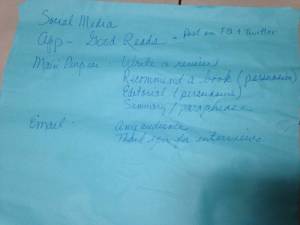 Social Media
App - Good Reads - Post on FB + Twitter
Main Purpose - Write a review
Recommend a book (persuasive)
Editorial (persuasive)
Summary / paraphrase
Email - audience
Thank you for interviews